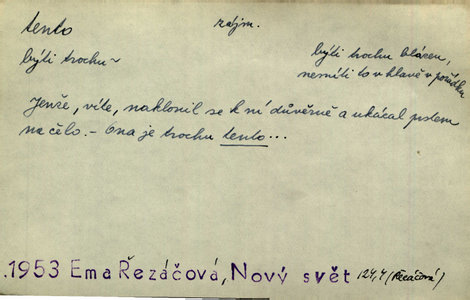 tento zájm.
býti trochu ~ býti trochu blázen,
nemíti to v hlavě v pořádku
Jenže, víte, naklonil se k ní důvěrně a ukázal prstem
na čelo. – Ona je trochu tento...
.1953 Ema Řezáčová, Nový svět 124,4 (Řezáčová)